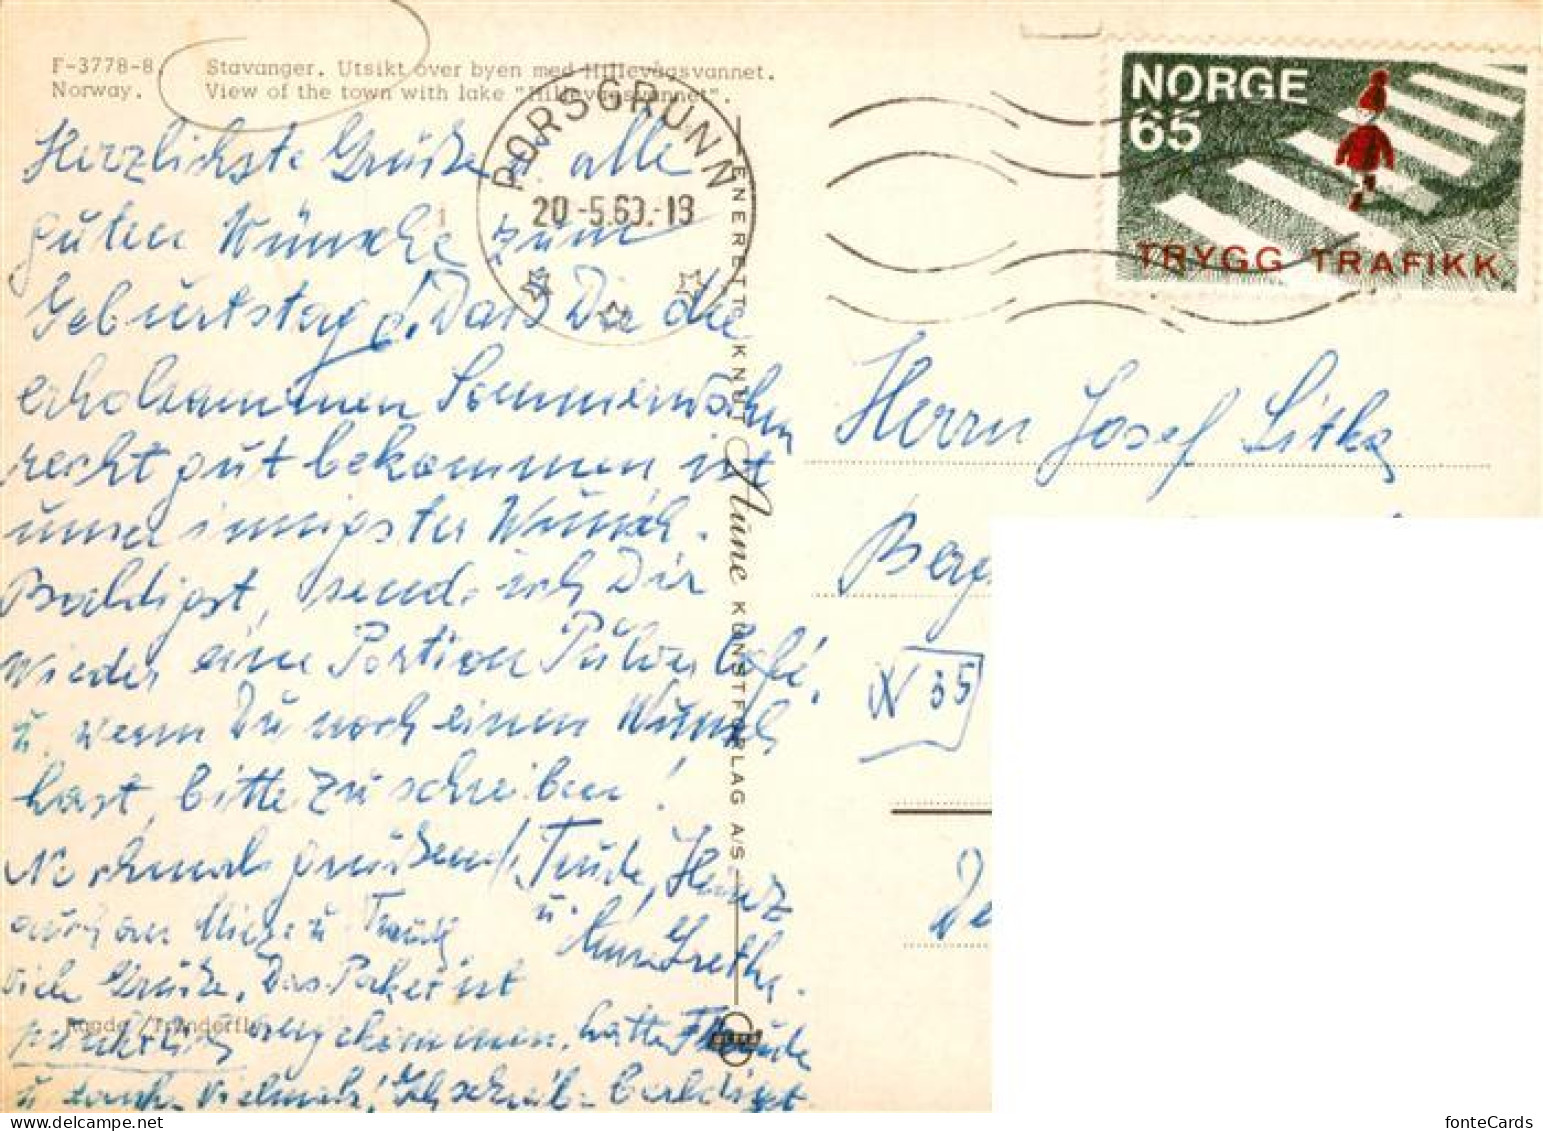 F-3778-8 Stavanger. Utsikt over byen med Hillevågsvannet.
Norway. View of the town with lake "Hillevågsvannet".
NORGE
65
TRYGG TRAFIKK
PORSGRUNN
20-5.69.-19
Herzlichste Grüße u. alle
guten Wünsche zum
Geburtstag! Daß Dir die
recht gut bekommen ist
unser innigster Wunsch.
Baldigst send. ich Dir
wieder eine Portion Pulver Café,
u. wenn Du noch einen Wunsch
hast, bitte zu schreiben!
Nochmals grüßend, Trude, Heinz
auch an u. u.
viele Grüße. Das Paket ist
angekommen, hatte Freude
u. danke vielmals! Ich schreib. baldigst
ENERETT KNUT Aune KUNSTFORLAG A/S
Herrn Josef Litka
Berg
W 35
De
fonteCards